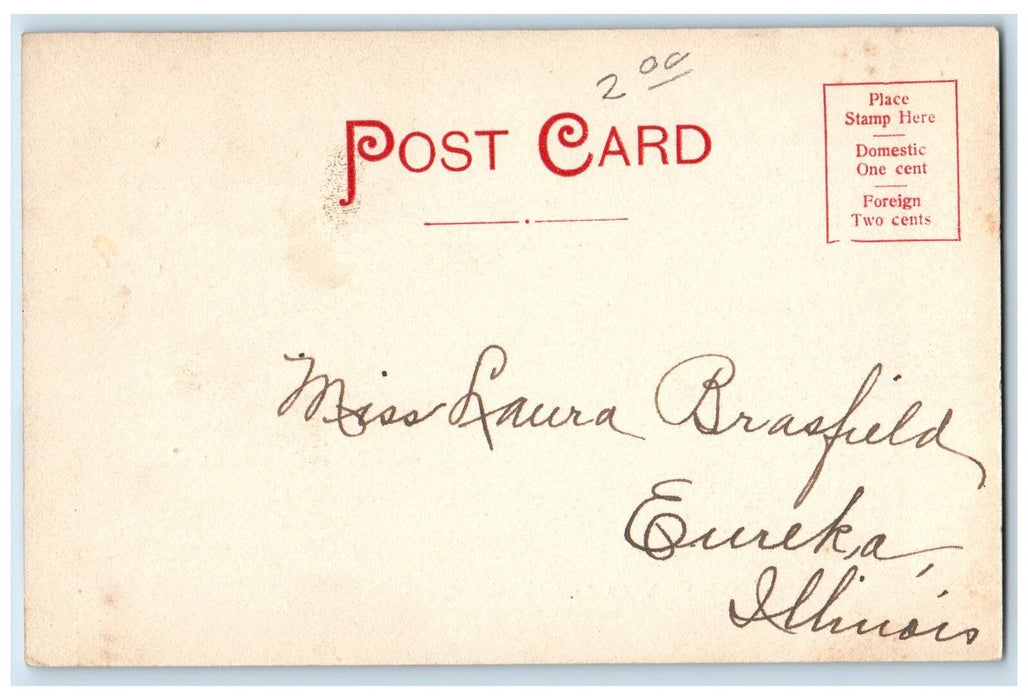 2 00
POST CARD
Place
Stamp Here
Domestic
One cent
Foreign
Two cents
Miss Laura Brasfield
Eureka,
Illinois